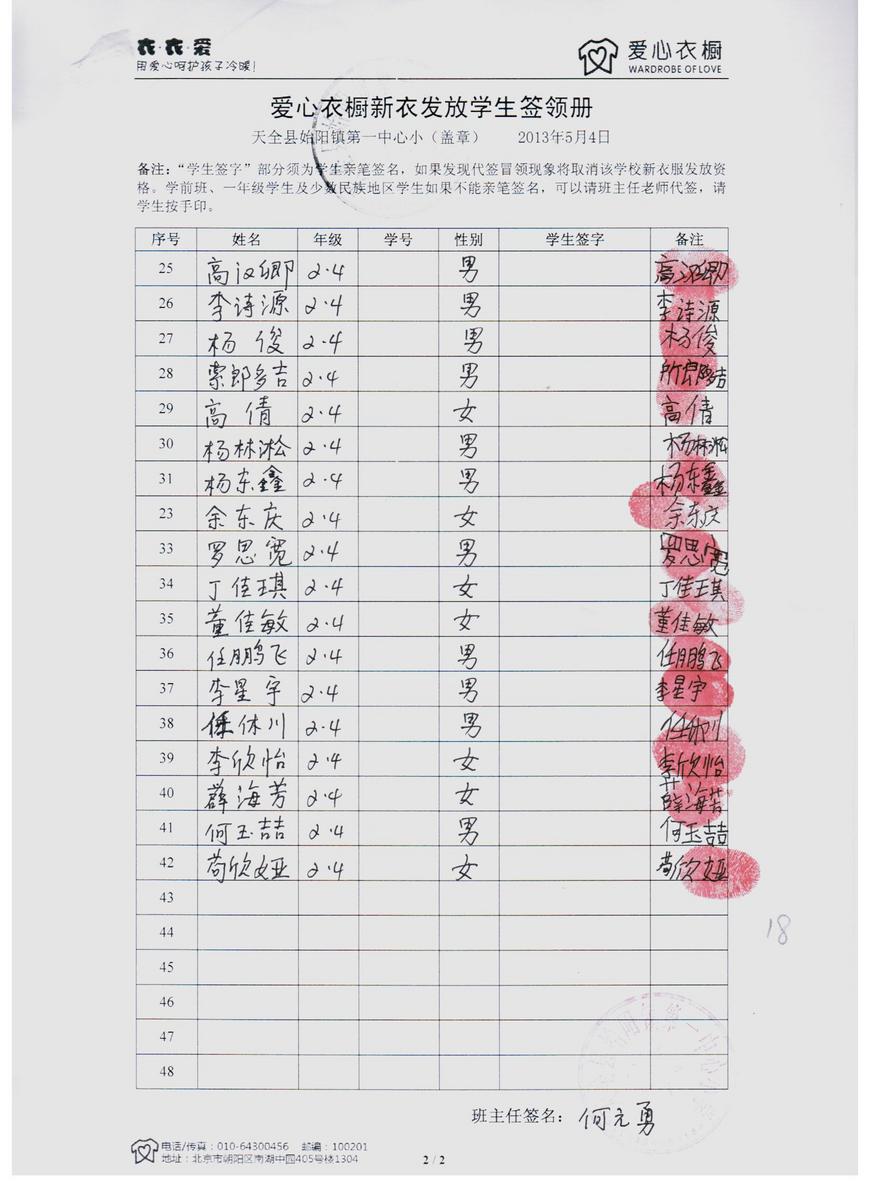 衣·衣·爱
用爱心呵护孩子冷暖!
爱心衣橱
WARDROBE OF LOVE
爱心衣橱新衣发放学生签领册
天全县始阳镇第一中心小（盖章） 2013年5月4日
备注：“学生签字”部分须为学生亲笔签名，如果发现代签冒领现象将取消该学校新衣服发放资
格。学前班、一年级学生及少数民族地区学生如果不能亲笔签名，可以请班主任老师代签，请
学生按手印。
序号 姓名 年级 学号 性别 学生签字 备注
25 高汉卿 2·4 男 高汉卿
26 李诗源 2·4 男 李诗源
27 杨俊 2·4 男 杨俊
28 索郎多吉 2·4 男 所郎多吉
29 高倩 2·4 女 高倩
30 杨林淞 2·4 男 杨林淞
31 杨东鑫 2·4 男 杨东鑫
23 余东庆 2·4 女 余东庆
33 罗思宽 2·4 男 罗思宽
34 丁佳琪 2·4 女 丁佳琪
35 董佳敏 2·4 女 董佳敏
36 任鹏飞 2·4 男 任鹏飞
37 李星宇 2·4 男 李星宇
38 任休川 2·4 男
39 李欣怡 2·4 女 李欣怡
40 薛海芳 2·4 女 薛海芳
41 何玉喆 2·4 男 何玉喆
42 苟欣娅 2·4 女 苟欣娅
43
44
45
46
47
48
18
班主任签名：何元勇
电话/传真：010-64300456 邮编：100201
地址：北京市朝阳区南湖中园405号楼1304
2 / 2